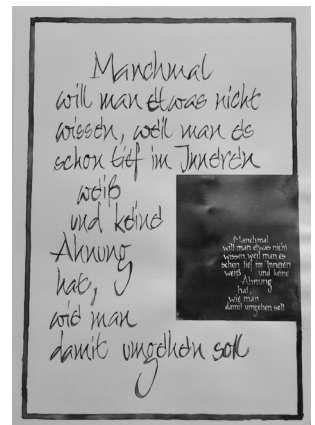 Manchmal
will man etwas nicht
wissen, weil man es
schon tief im Inneren
weiß
und keine
Ahnung
hat,
wie man
damit umgehen soll
Manchmal
will man etwas nicht
wissen, weil man es
schon tief im Inneren
weiß und keine
Ahnung
hat,
wie man
damit umgehen soll